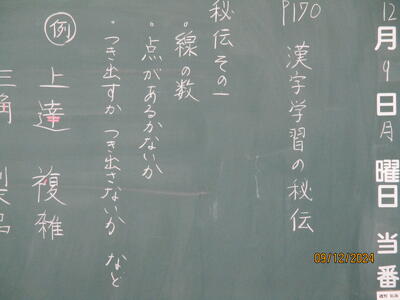 12月9日月曜日 当番
P170 漢字学習の秘伝
秘伝その一
・線の数
・点があるかないか
・つき出すか つき出さないか など
例 上達 複雑
三角
09/12/2024